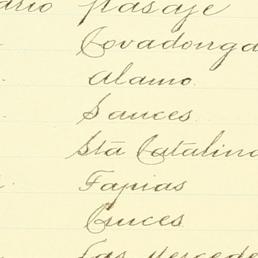 ario pasaje
Covadonga
Alamo.
Sauces.
Sta Catalina
Tapias
Cruces
Las Mercede